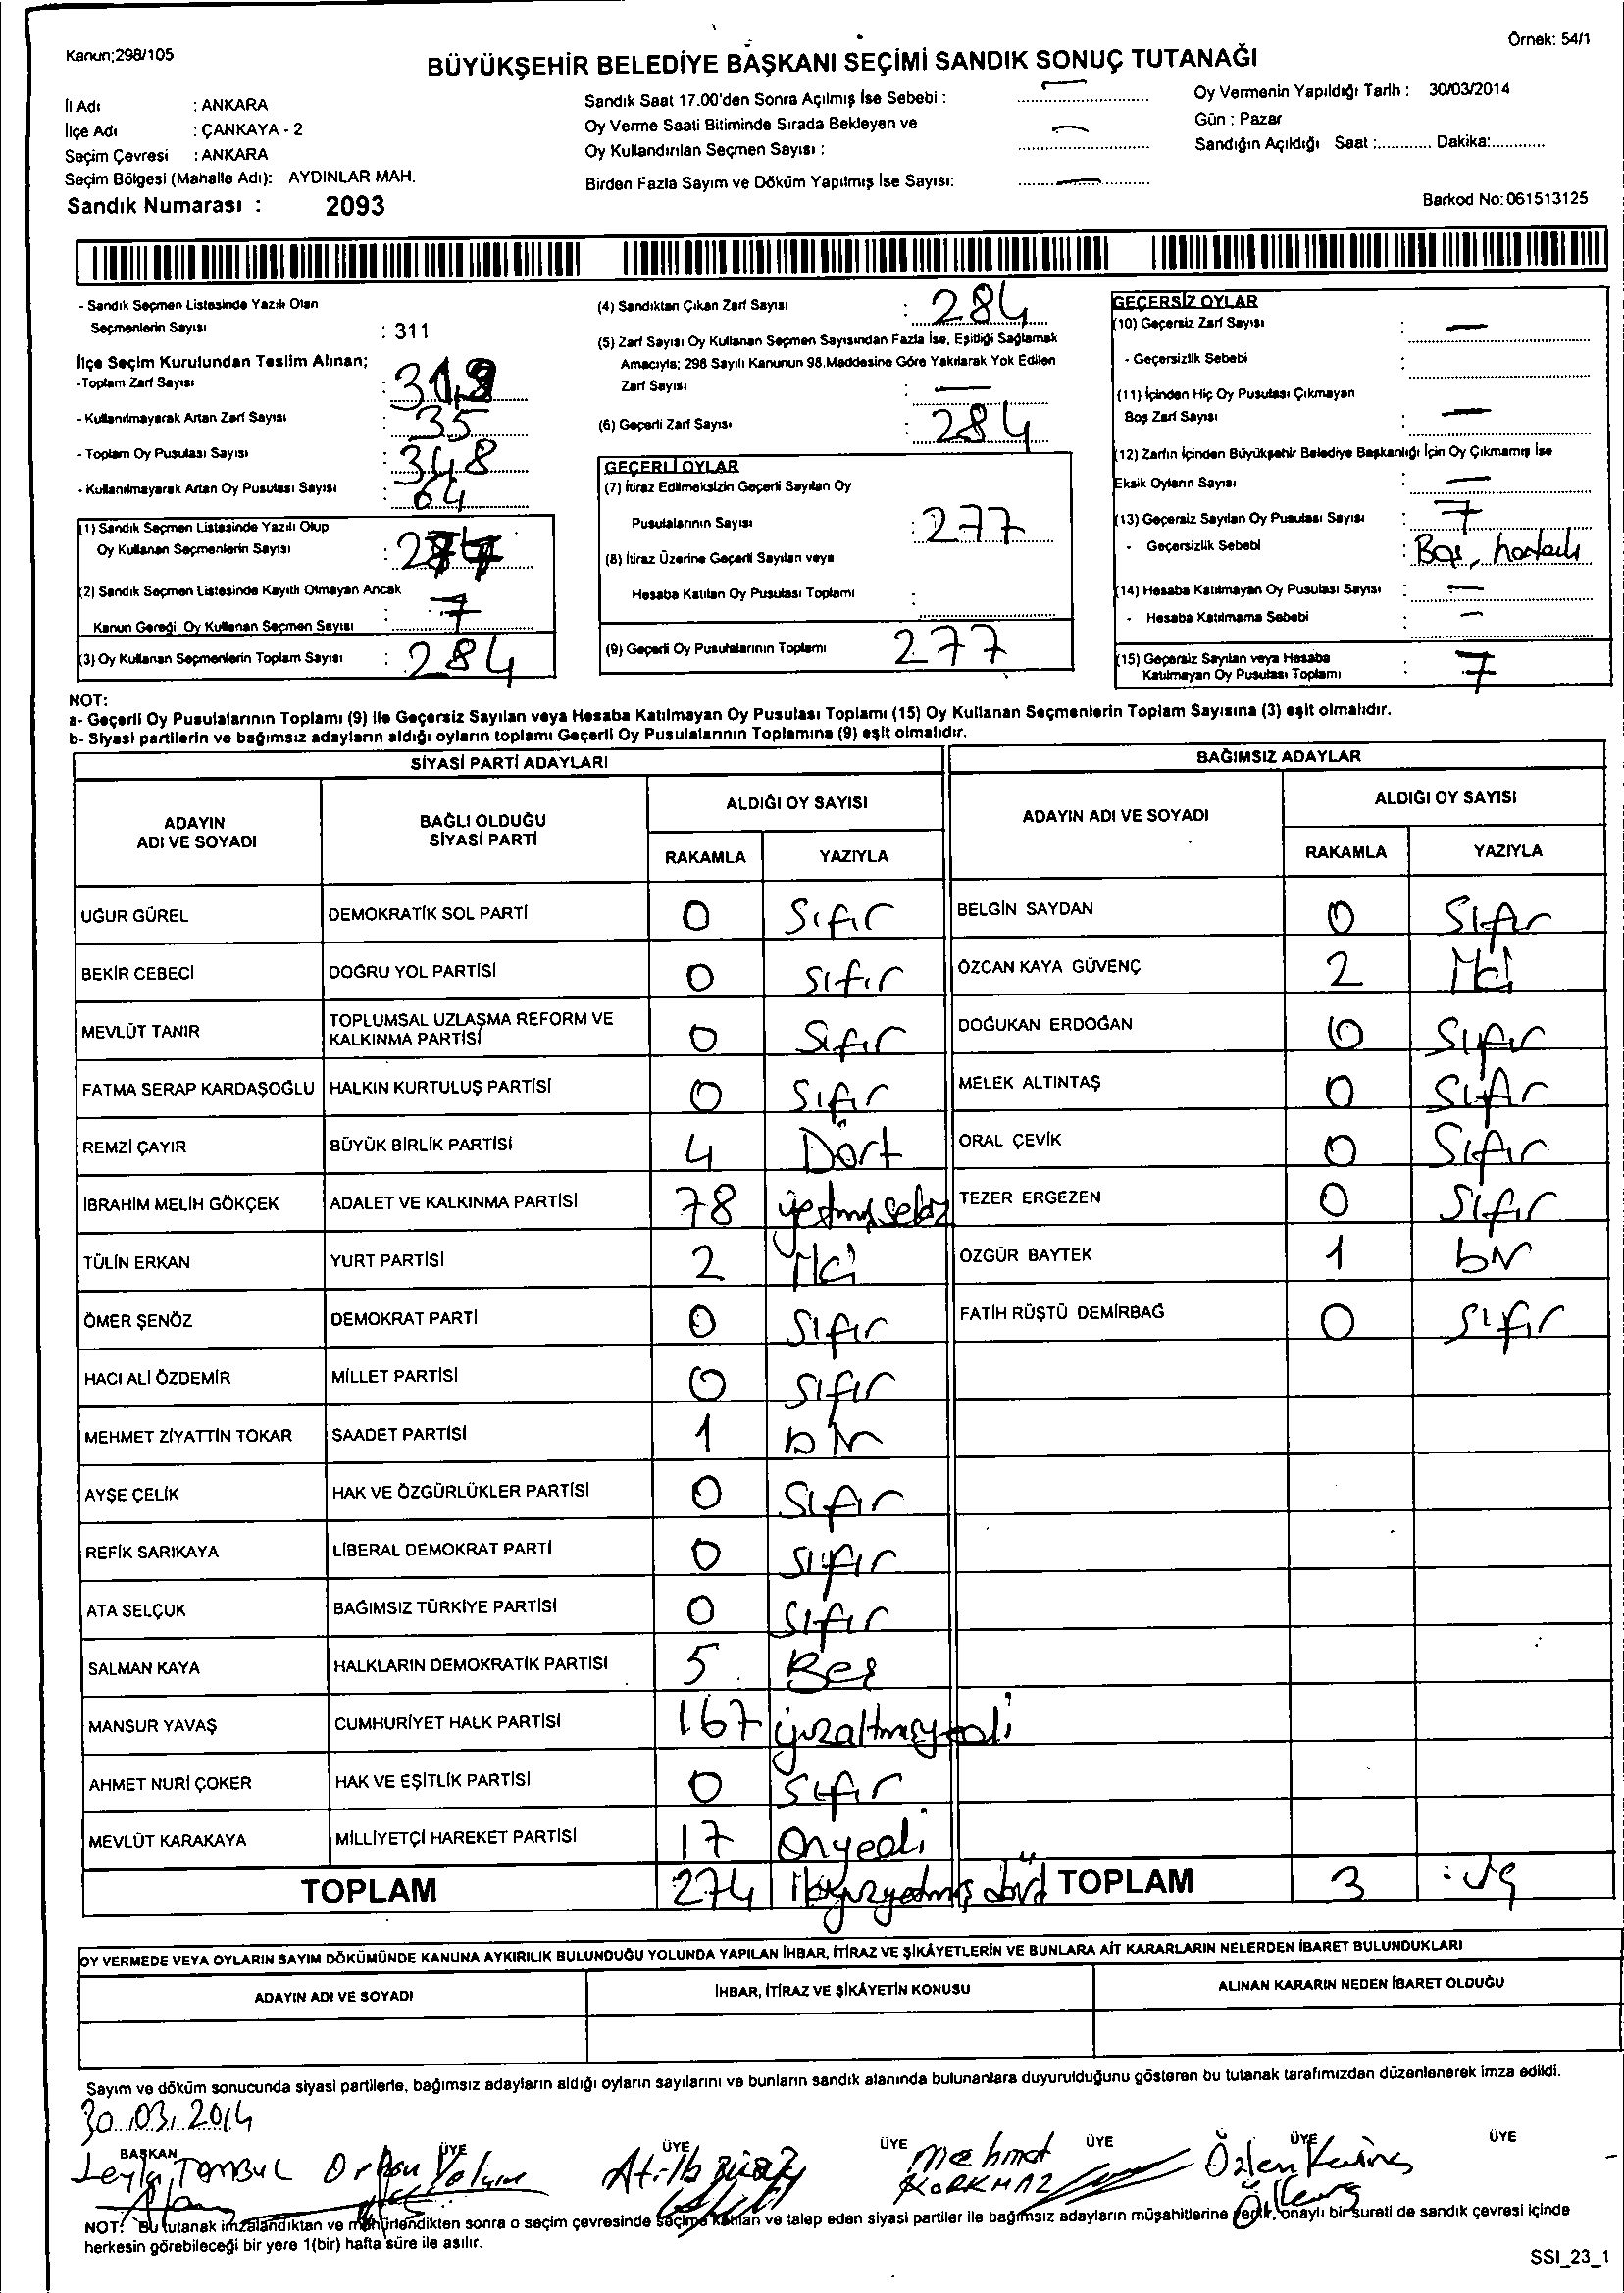 Kanun;298/105
Örnek: 54/1
BÜYÜKŞEHİR BELEDİYE BAŞKANI SEÇİMİ SANDIK SONUÇ TUTANAĞI
İl Adı : ANKARA
İlçe Adı : ÇANKAYA - 2
Seçim Çevresi : ANKARA
Seçim Bölgesi (Mahalle Adı): AYDINLAR MAH.
Sandık Numarası : 2093
Sandık Saat 17.00'den Sonra Açılmış İse Sebebi : —
Oy Verme Saati Bitiminde Sırada Bekleyen ve
Oy Kullandırılan Seçmen Sayısı : —
Birden Fazla Sayım ve Döküm Yapılmış İse Sayısı: —
Oy Vermenin Yapıldığı Tarih : 30/03/2014
Gün : Pazar
Sandığın Açıldığı Saat :............ Dakika:............
Barkod No: 061513125
- Sandık Seçmen Listesinde Yazılı Olan
Seçmenlerin Sayısı : 311
İlçe Seçim Kurulundan Teslim Alınan;
-Toplam Zarf Sayısı :
- Kullanılmayarak Artan Zarf Sayısı : 35
- Toplam Oy Pusulası Sayısı : 348
- Kullanılmayarak Artan Oy Pusulası Sayısı : 64
(1) Sandık Seçmen Listesinde Yazılı Olup
Oy Kullanan Seçmenlerin Sayısı :
(2) Sandık Seçmen Listesinde Kayıtlı Olmayan Ancak
Kanun Gereği Oy Kullanan Seçmen Sayısı : 7
(3) Oy Kullanan Seçmenlerin Toplam Sayısı : 284
(4) Sandıktan Çıkan Zarf Sayısı : 284
(5) Zarf Sayısı Oy Kullanan Seçmen Sayısından Fazla İse, Eşitliği Sağlamak
Amacıyla; 298 Sayılı Kanunun 98.Maddesine Göre Yakılarak Yok Edilen
Zarf Sayısı : —
(6) Geçerli Zarf Sayısı : 284
GEÇERLİ OYLAR
(7) İtiraz Edilmeksizin Geçerli Sayılan Oy
Pusulalarının Sayısı : 277
(8) İtiraz Üzerine Geçerli Sayılan veya
Hesaba Katılan Oy Pusulası Toplamı :
(9) Geçerli Oy Pusulalarının Toplamı 277
GEÇERSİZ OYLAR
(10) Geçersiz Zarf Sayısı : —
- Geçersizlik Sebebi :
(11) İçinden Hiç Oy Pusulası Çıkmayan
Boş Zarf Sayısı : —
(12) Zarfın İçinden Büyükşehir Belediye Başkanlığı İçin Oy Çıkmamış İse
Eksik Oyların Sayısı : —
(13) Geçersiz Sayılan Oy Pusulası Sayısı : 7
- Geçersizlik Sebebi : Boş,
(14) Hesaba Katılmayan Oy Pusulası Sayısı : —
- Hesaba Katılmama Sebebi : —
(15) Geçersiz Sayılan veya Hesaba
Katılmayan Oy Pusulası Toplamı : 7
NOT:
a- Geçerli Oy Pusulalarının Toplamı (9) ile Geçersiz Sayılan veya Hesaba Katılmayan Oy Pusulası Toplamı (15) Oy Kullanan Seçmenlerin Toplam Sayısına (3) eşit olmalıdır.
b- Siyasi partilerin ve bağımsız adayların aldığı oyların toplamı Geçerli Oy Pusulalarının Toplamına (9) eşit olmalıdır.
SİYASİ PARTİ ADAYLARI
ADAYIN ADI VE SOYADI BAĞLI OLDUĞU SİYASİ PARTİ ALDIĞI OY SAYISI
RAKAMLA YAZIYLA
UĞUR GÜREL DEMOKRATİK SOL PARTİ 0 Sıfır
BEKİR CEBECİ DOĞRU YOL PARTİSİ 0 Sıfır
MEVLÜT TANIR TOPLUMSAL UZLAŞMA REFORM VE KALKINMA PARTİSİ 0 Sıfır
FATMA SERAP KARDAŞOĞLU HALKIN KURTULUŞ PARTİSİ 0 Sıfır
REMZİ ÇAYIR BÜYÜK BİRLİK PARTİSİ 4 Dört
İBRAHİM MELİH GÖKÇEK ADALET VE KALKINMA PARTİSİ 78 yetmişsekiz
TÜLİN ERKAN YURT PARTİSİ 2 İki
ÖMER ŞENÖZ DEMOKRAT PARTİ 0 Sıfır
HACI ALİ ÖZDEMİR MİLLET PARTİSİ 0 Sıfır
MEHMET ZİYATTİN TOKAR SAADET PARTİSİ 1 bir
AYŞE ÇELİK HAK VE ÖZGÜRLÜKLER PARTİSİ 0 Sıfır
REFİK SARIKAYA LİBERAL DEMOKRAT PARTİ 0 Sıfır
ATA SELÇUK BAĞIMSIZ TÜRKİYE PARTİSİ 0 Sıfır
SALMAN KAYA HALKLARIN DEMOKRATİK PARTİSİ 5 Beş
MANSUR YAVAŞ CUMHURİYET HALK PARTİSİ 167 yüzaltmışyedi
AHMET NURİ ÇOKER HAK VE EŞİTLİK PARTİSİ 0 Sıfır
MEVLÜT KARAKAYA MİLLİYETÇİ HAREKET PARTİSİ 17 Onyedi
TOPLAM 274 ikiyüzyetmiş dört
BAĞIMSIZ ADAYLAR
ADAYIN ADI VE SOYADI ALDIĞI OY SAYISI
RAKAMLA YAZIYLA
BELGİN SAYDAN 0 Sıfır
ÖZCAN KAYA GÜVENÇ 2 İki
DOĞUKAN ERDOĞAN 0 Sıfır
MELEK ALTINTAŞ 0 Sıfır
ORAL ÇEVİK 0 Sıfır
TEZER ERGEZEN 0 Sıfır
ÖZGÜR BAYTEK 1 bir
FATİH RÜŞTÜ DEMİRBAĞ 0 Sıfır
TOPLAM 3 üç
OY VERMEDE VEYA OYLARIN SAYIM DÖKÜMÜNDE KANUNA AYKIRILIK BULUNDUĞU YOLUNDA YAPILAN İHBAR, İTİRAZ VE ŞİKÂYETLERİN VE BUNLARA AİT KARARLARIN NELERDEN İBARET BULUNDUKLARI
ADAYIN ADI VE SOYADI İHBAR, İTİRAZ VE ŞİKÂYETİN KONUSU ALINAN KARARIN NEDEN İBARET OLDUĞU
Sayım ve döküm sonucunda siyasi partilerle, bağımsız adayların aldığı oyların sayılarını ve bunların sandık alanında bulunanlara duyurulduğunu gösteren bu tutanak tarafımızdan düzenlenerek imza edildi.
30.03.2014
BAŞKAN ÜYE ÜYE ÜYE ÜYE ÜYE ÜYE
Leyla TOMBUL Orhan Yalçın Mehmet KORKMAZ Özlen
NOT: Bu tutanak imzalandıktan ve mühürlendikten sonra o seçim çevresinde seçime katılan ve talep eden siyasi partiler ile bağımsız adayların müşahitlerine verilir, onaylı bir sureti de sandık çevresi içinde
herkesin görebileceği bir yere 1(bir) hafta süre ile asılır.
SSI_23_1